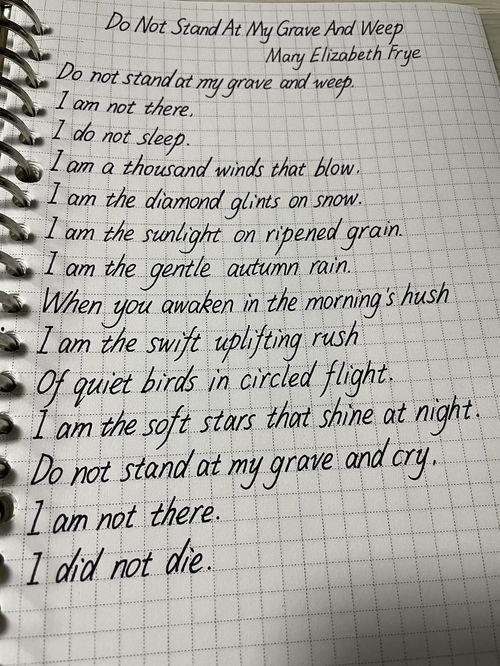 Do Not Stand At My Grave And Weep
Mary Elizabeth Frye
Do not stand at my grave and weep.
I am not there.
I do not sleep.
I am a thousand winds that blow.
I am the diamond glints on snow.
I am the sunlight on ripened grain.
I am the gentle autumn rain.
When you awaken in the morning's hush
I am the swift uplifting rush
Of quiet birds in circled flight.
I am the soft stars that shine at night.
Do not stand at my grave and cry.
I am not there.
I did not die.